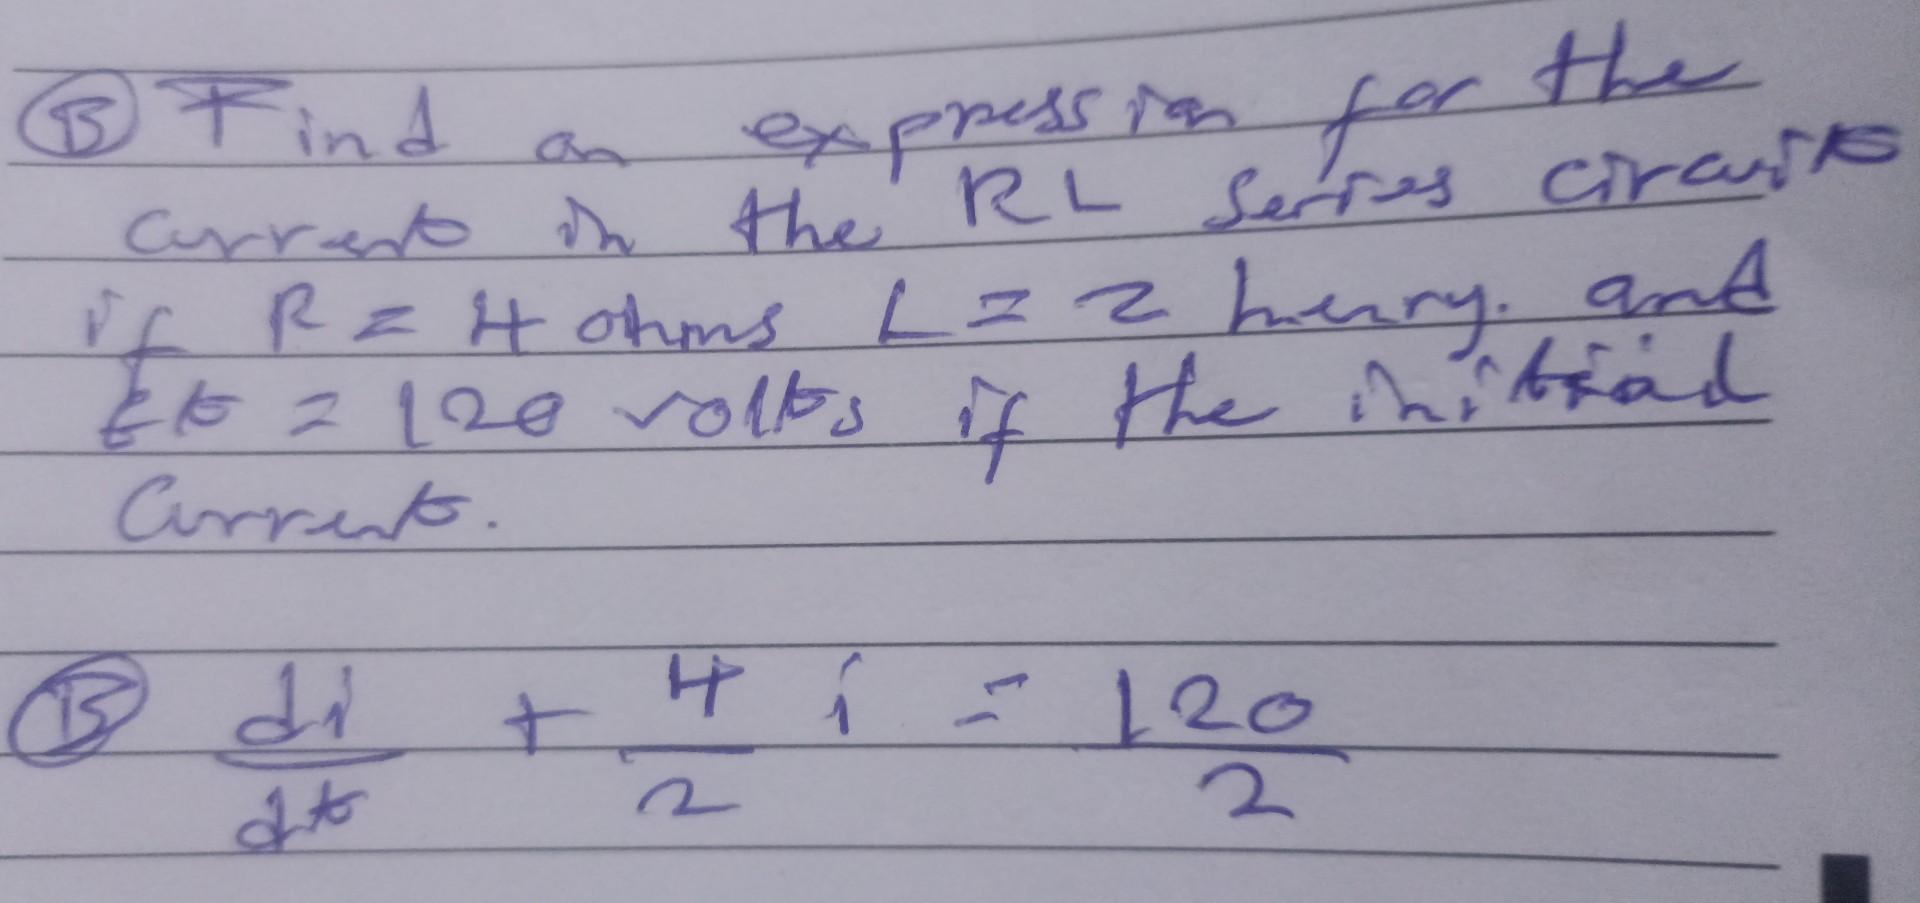 Ⓑ Find an expression for the
current in the RL series circuit
if R = 4 ohms L = 2 henry. and
Et = 120 volts if the initial
Current.
Ⓑ di/dt + 4/2 i = 120/2